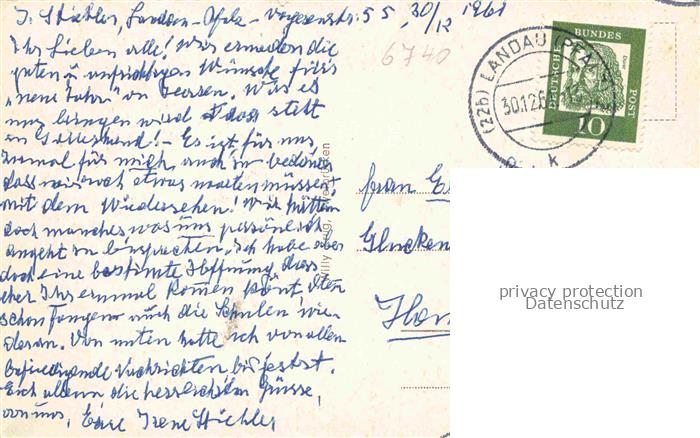 I. Stichler, Landau-Pfalz-Vogesenstr. 55, 30/12 1961
6740
Ihr Lieben alle! Wir erwidern die
guten u. aufrichtigen Wünsche für's
"neue Jahr" von Herzen. Was es
uns bringen wird, das steht
in Gottes Hand! - Es ist für uns,
zumal für mich, auch zu bedauern,
dass wir noch etwas warten müssen
mit dem Wiedersehen! Wir hätten
doch manches was uns persönlich
angeht zu besprechen. Ich habe aber
doch eine bestimmte Hoffnung, dass
eher Ihr einmal kommen könnt.
schon fangen auch die Schulen wie-
deran. Von hatte ich von allen
befriedigende Nachrichten bis jetzt.
Euch allen die herzlichsten Grüsse,
von uns, Eure Irene Stichler
(22b) LANDAU (PFALZ)
30.12.61
k
DEUTSCHE BUNDES POST
Dürer
10
Willy
Frau
Glocken
Hom
privacy protection
Datenschutz